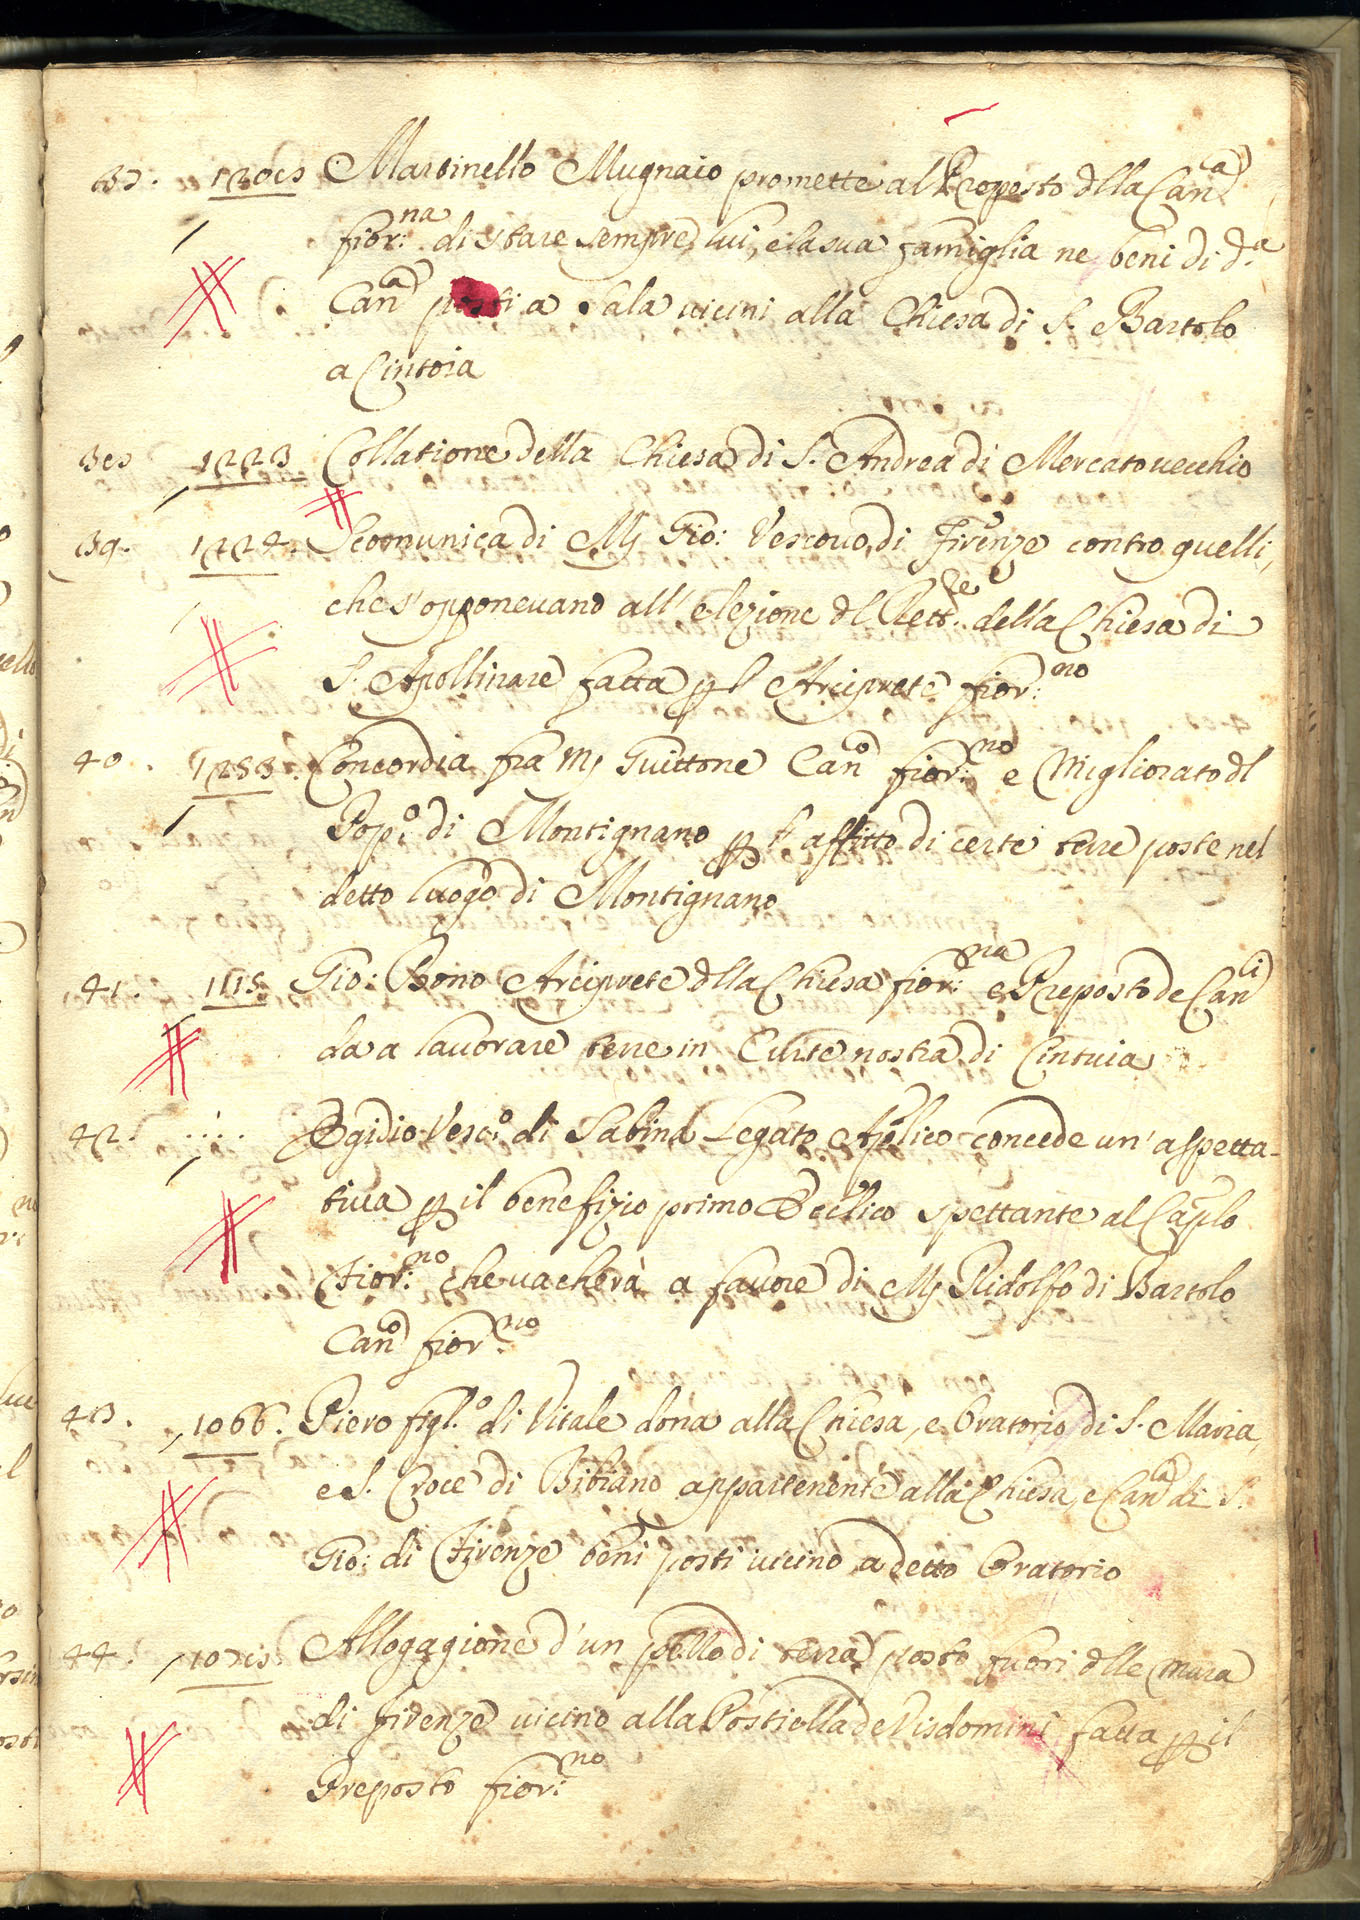 37. 1208 Martinello Mugnaio promette al Proposto dlla Can.ᵃ
fior:ⁿᵃ di stare sempre, lui, e la sua famiglia ne beni di d.ᵃ
Can.ᵃ posti a Sala vicini alla Chiesa di S. Bartolo
a Cintoia
38 1223 Collatione della Chiesa di S. Andrea di Mercato vecchio
39. 1224. Scomunica di Mſ Gio: Vescovo di Firenze contro quelli,
che s'opponevano all' elezione dl Rett.ʳᵉ della Chiesa di
S. Apollinare fatta p l' Arciprete fior:ⁿᵒ
40. 1283. Concordia fra Mſ Guittone Can.ᵒ fior:ⁿᵒ e Migliorato dl
Pop.ᵒ di Montignano p l' affitto di certe terre poste nel
detto luogo di Montignano
41. 1115. Gio: Bono Arciprete dlla Chiesa fior:ⁿᵃ e Preposto de Can.ⁱ
da a lavorare terre in Curte nostra di Cintuia
42. .... Egidio Vesc.ᵒ di Sabina Legato Aplico concede un' aspetta-
tiva p il benefizio primo Ecclico spettante al Caplo
Fior:ⁿᵒ che vacherà a favore di Mſ Ridolfo di Bartolo
Can.ᵒ fior.ⁿᵒ
43. 1066. Piero figl.ᵒ di Vitale dona alla Chiesa, e Oratorio di S. Maria,
e S. Croce di Bibiano appartenente alla Chiesa, e Can.ᵃ di S.
Gio: di Firenze beni posti vicino a detto Oratorio
44. 1078. Allogagione d'un pzzo di terra posto fuori dlle mura
di firenze vicino alla Postiella de Visdomini fatta p il
Preposto fior:ⁿᵒ